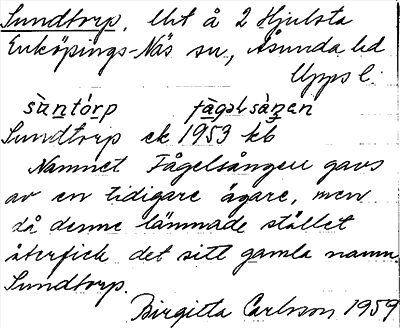 Sundtorp, lht å 2 Hjulsta
Enköpings-Näs sn, Åsunda hd
Upps l.
sùntórp fàgəlsàŋən
Sundtorp ek 1953 kb
Namnet Fågelsången gavs
av en tidigare ägare, men
då denne lämnade stället
återfick det sitt gamla namn
Sundtorp.
Birgitta Carlsson 1959